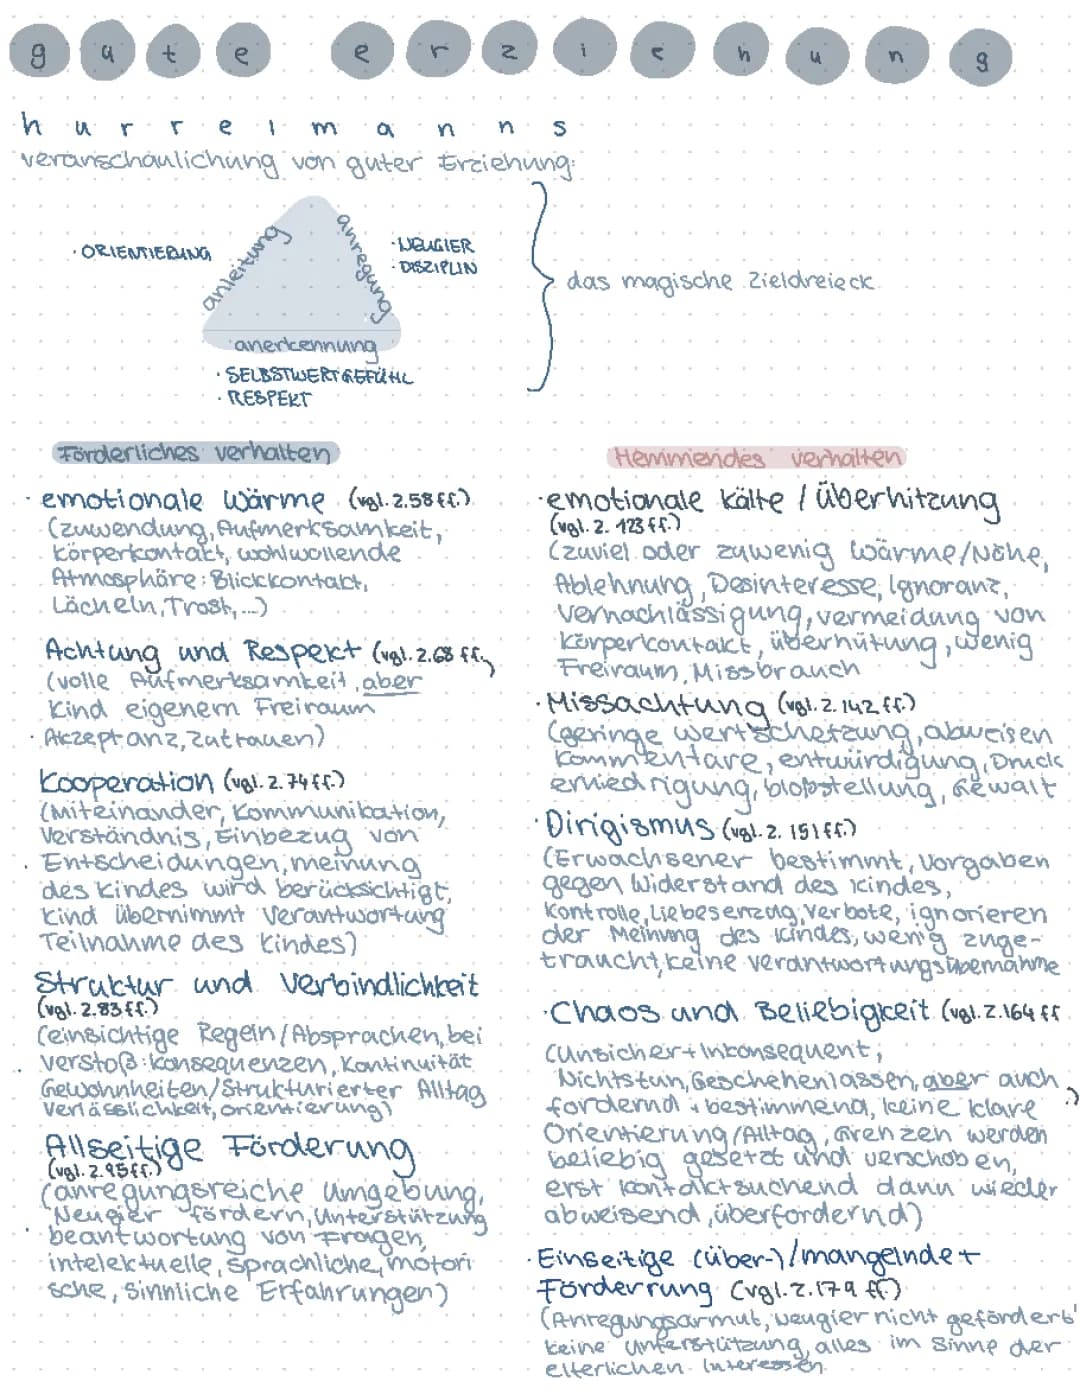 gute erziehung
hurrelmanns
veranschaulichung von guter Erziehung:
· ORIENTIERUNG
anleitung
anregung
· NEUGIER
· DISZIPLIN
anerkennung
· SELBSTWERTGEFÜHL
· RESPEKT
das magische Zieldreieck
Förderliches verhalten
· emotionale Wärme (vgl. Z.58ff.)
(zuwendung, Aufmerksamkeit,
körperkontakt, wohlwollende
Atmosphäre: Blickkontakt,
Lächeln, Trost, ...)
Achtung und Respekt (vgl. Z.68 ff.)
(volle Aufmerksamkeit, aber
Kind eigenem Freiraum
· Akzeptanz, Zutrauen)
Kooperation (vgl. Z.74ff.)
(Miteinander, Kommunikation,
Verständnis, Einbezug von
· Entscheidungen, meinung
des Kindes wird berücksichtigt,
Kind übernimmt Verantwortung
Teilnahme des Kindes)
Struktur und Verbindlichkeit
(vgl. Z.83ff.)
(einsichtige Regeln/Absprachen, bei
· verstoß: konsequenzen, Kontinuität
Gewohnheiten/Strukturierter Alltag
Verlässlichkeit, orientierung)
Allseitige Förderung
(vgl. Z.95ff.)
(anregungsreiche Umgebung,
Neugier fördern, Unterstützung
· beantwortung von Fragen,
intelektuelle, sprachliche, motori
sche, Sinnliche Erfahrungen)
Hemmendes verhalten
· emotionale Kälte / Überhitzung
(vgl. Z. 123ff.)
(zuviel oder zuwenig Wärme/Nähe,
Ablehnung, Desinteresse, Ignoranz,
vernachlässigung, vermeidung von
Körperkontakt, überhütung, wenig
Freiraum, Missbrauch
· Missachtung (vgl. Z. 142 ff.)
(geringe wertschetzung, abweisen
Kommentare, entwürdigung, Druck
erniedrigung, bloßstellung, Gewalt
· Dirigismus (vgl. Z. 151ff.)
(Erwachsener bestimmt, Vorgaben
gegen Widerstand des Kindes,
Kontrolle, Liebesenzug, Verbote, ignorieren
der Meinung des Kindes, wenig zuge-
traucht, keine verantwortungsübernahme
· Chaos und Beliebigkeit (vgl. Z.164 ff
(Unsicher + Inkonsequent,
Nichtstun, Geschehenlassen, aber auch
fordernd + bestimmend, keine klare
Orientierung/Alltag, Grenzen werden
beliebig gesetzt und verschoben,
erst kontaktsuchend dann wieder
abweisend, überfordernd)
· Einseitige (über-)/mangelnde+
Förderrung (vgl. Z.179 ff.)
(Anregungsarmut, neugier nicht gefördert
keine unterstützung, alles im Sinne der
elterlichen Interessen